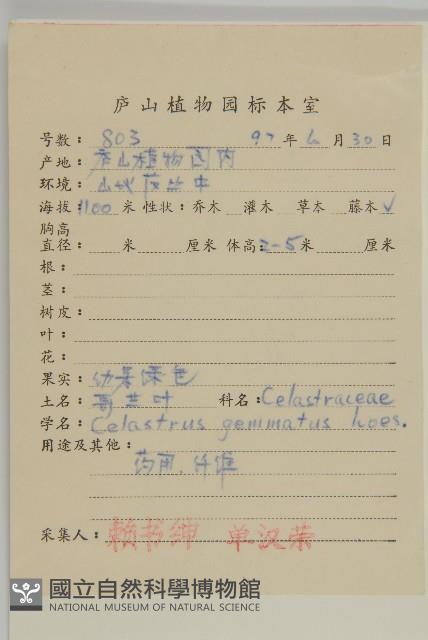 庐山植物园标本室
号数：803 97年6月30日
产地：庐山植物园内
环境：山坡 丛中
海拔：1100米 性状：乔木 灌木 草本 藤本✓
胸高
直径： 米 厘米 体高：2-5米 厘米
根：
茎：
树皮：
叶：
花：
果实：幼果绿色
土名： 叶 科名：Celastraceae
学名：Celastrus gemmatus loes.
用途及其他：
药用，纤维
采集人：赖书绅 单汉荣
國立自然科學博物館
NATIONAL MUSEUM OF NATURAL SCIENCE